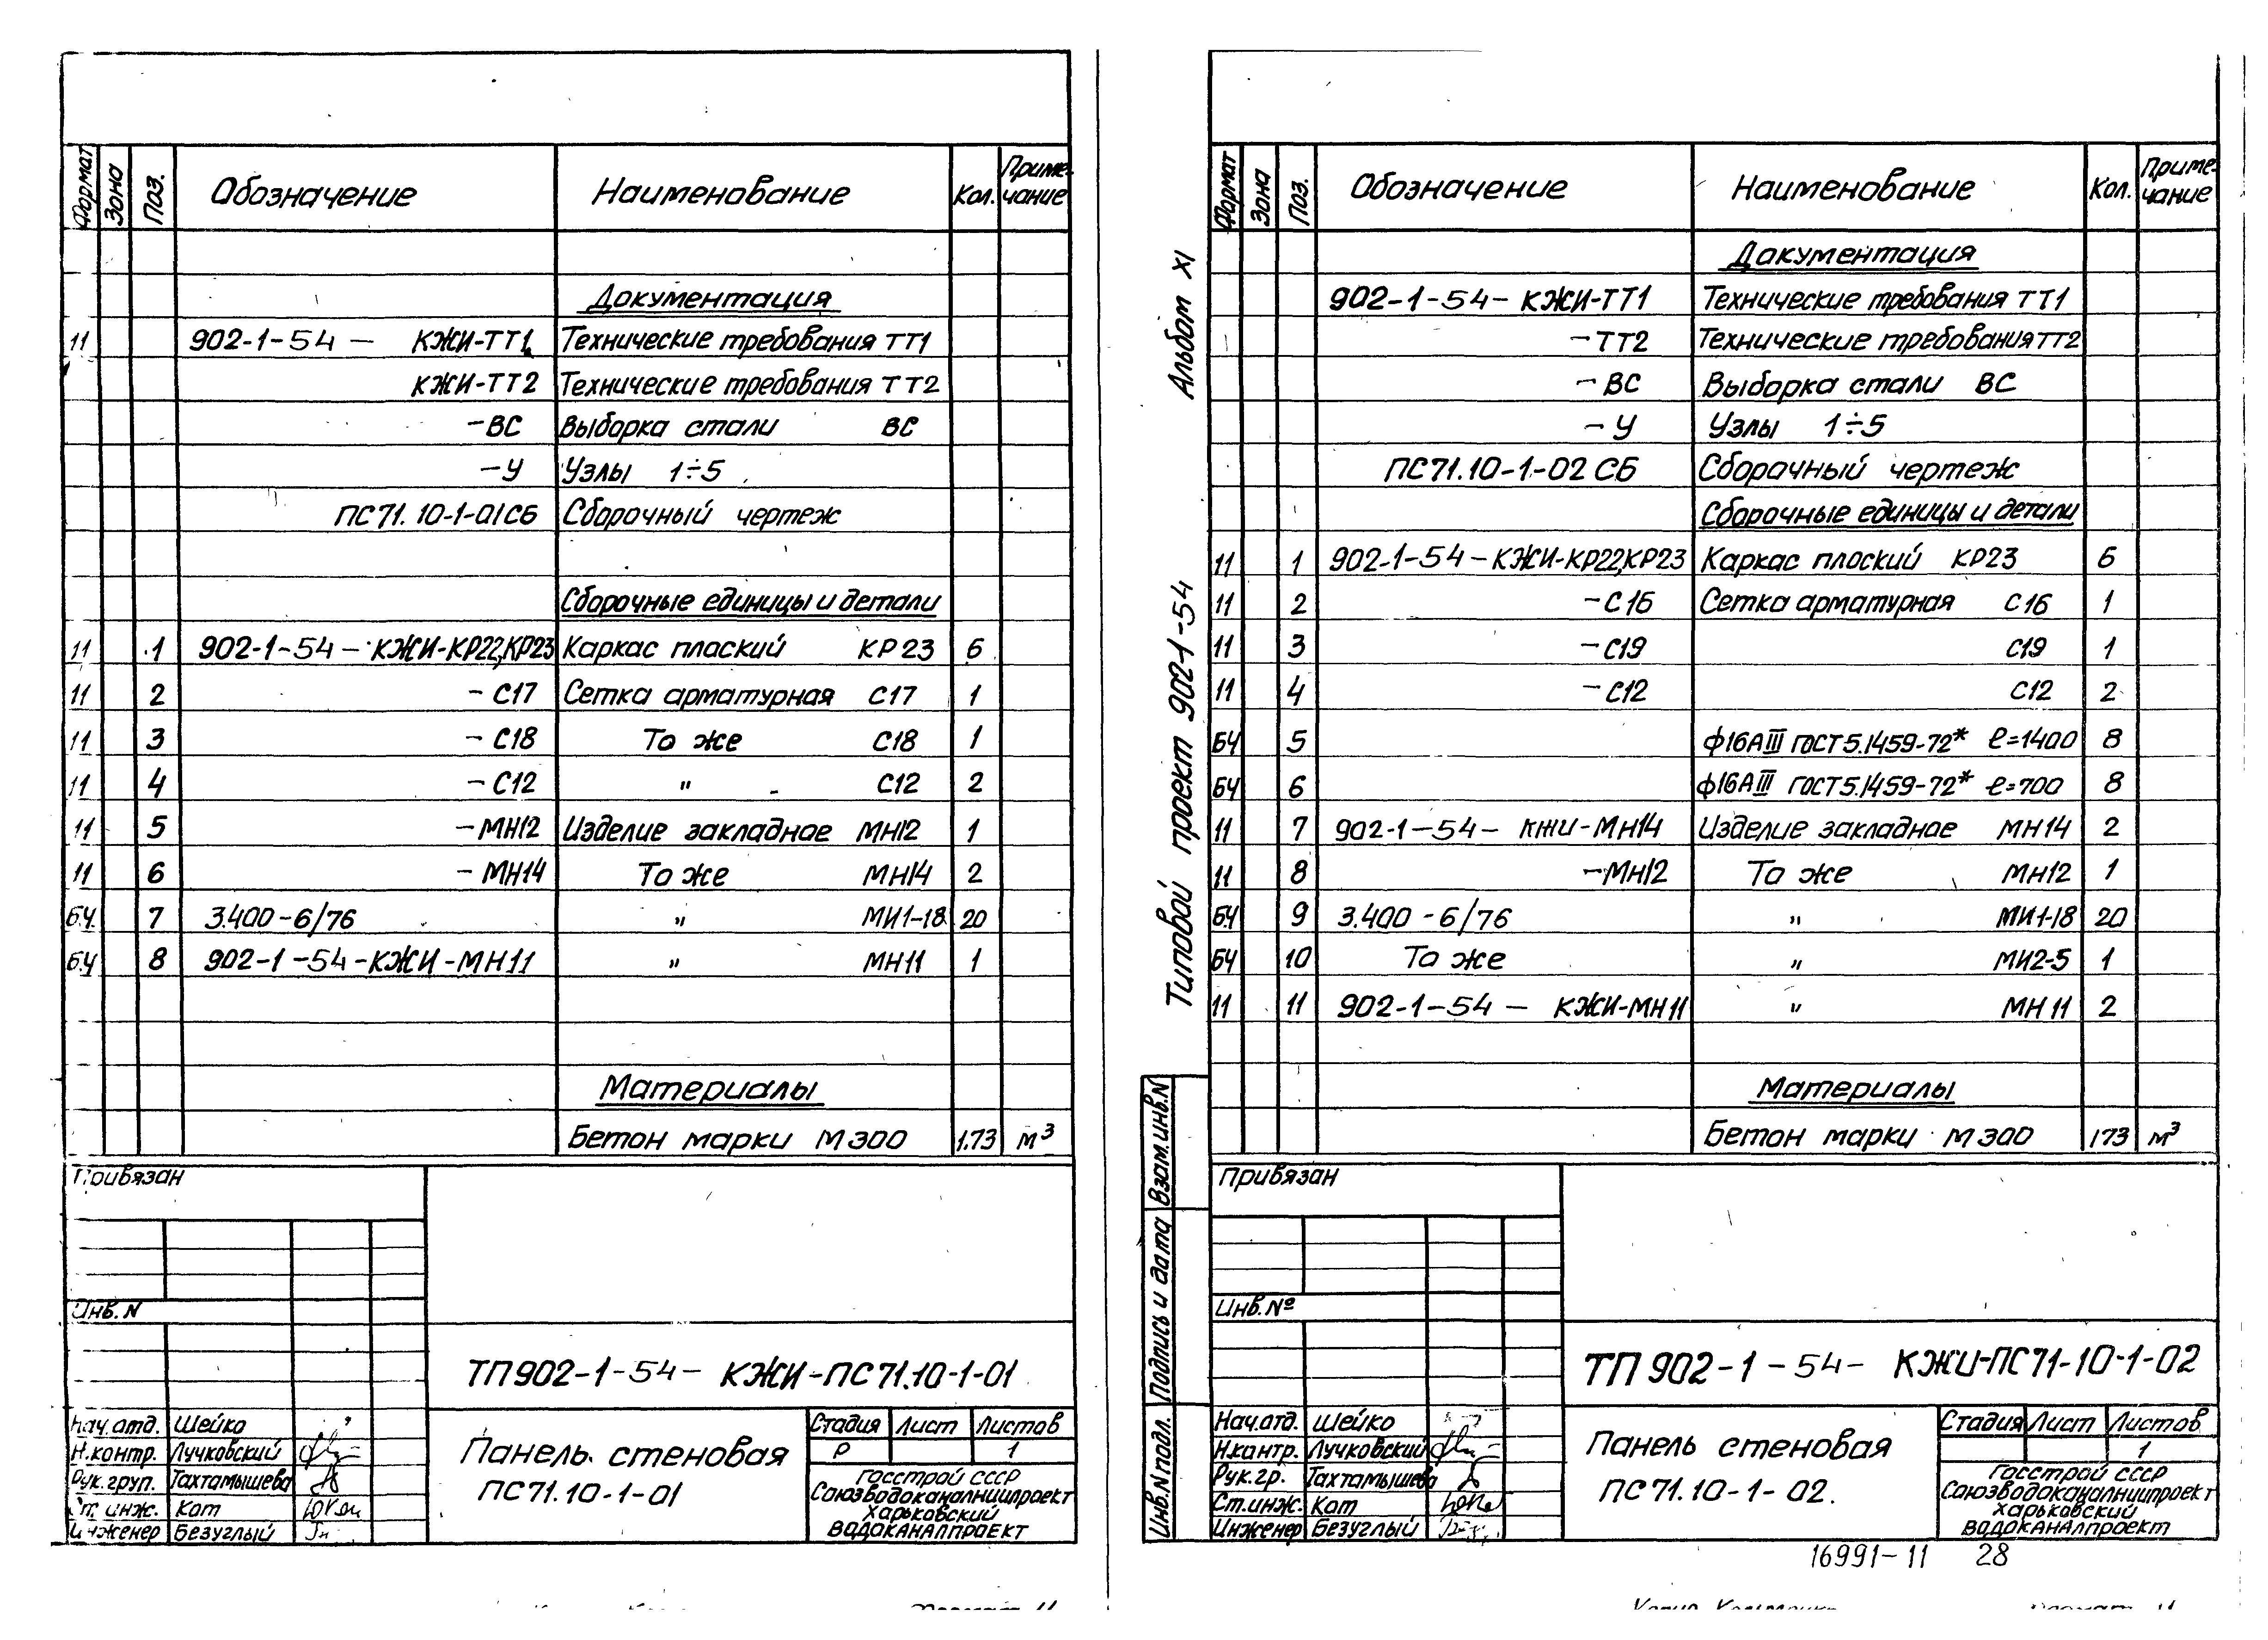 Формат Зона Поз. Обозначение Наименование Кол. Приме-чание
Документация
11 902-1-54- КЖИ-ТТ1 Технические требования ТТ1
КЖИ-ТТ2 Технические требования ТТ2
-ВС Выборка стали ВС
-У Узлы 1÷5
ПС71.10-1-01СБ Сборочный чертеж
Сборочные единицы и детали
11 1 902-1-54-КЖИ-КР22,КР23 Каркас плоский КР23 6
11 2 -С17 Сетка арматурная С17 1
11 3 -С18 То же С18 1
11 4 -С12 " С12 2
11 5 -МН12 Изделие закладное МН12 1
11 6 -МН14 То же МН14 2
БЧ 7 3.400-6/76 " МИ1-18 20
БЧ 8 902-1-54-КЖИ-МН11 " МН11 1
Материалы
Бетон марки М300 1.73 м³
Привязан
Инв. N
ТП902-1-54- КЖИ-ПС71.10-1-01
Нач.отд. Шейко
Н.контр. Лучковский
Рук.груп. Тахтамышева
Ст. инж. Кот
Инженер Безуглый
Панель стеновая
ПС71.10-1-01
Стадия Лист Листов
Р 1
Госстрой СССР
Союзводоканалниипроект
Харьковский
Водоканалпроект
Альбом XI
Типовой проект 902-1-54
Взам.инв.N
Подпись и дата
Инв.N подл.
Формат Зона Поз. Обозначение Наименование Кол. Приме-чание
Документация
902-1-54- КЖИ-ТТ1 Технические требования ТТ1
-ТТ2 Технические требования ТТ2
-ВС Выборка стали ВС
-У Узлы 1÷5
ПС71.10-1-02 СБ Сборочный чертеж
Сборочные единицы и детали
11 1 902-1-54-КЖИ-КР22,КР23 Каркас плоский КР23 6
11 2 -С16 Сетка арматурная С16 1
11 3 -С19 С19 1
11 4 -С12 С12 2
БЧ 5 ф16АIII ГОСТ5.1459-72* ℓ=1400 8
БЧ 6 ф16АIII ГОСТ5.1459-72* ℓ=700 8
11 7 902-1-54- КЖИ-МН14 Изделие закладное МН14 2
11 8 -МН12 То же МН12 1
БЧ 9 3.400-6/76 " МИ1-18 20
БЧ 10 То же " МИ2-5 1
11 11 902-1-54- КЖИ-МН11 " МН11 2
Материалы
Бетон марки М300 173 м³
Привязан
Инв.№
ТП902-1-54- КЖИ-ПС71-10-1-02
Нач.отд. Шейко
Н.контр. Лучковский
Рук.гр. Тахтамышева
Ст.инж. Кот
Инженер Безуглый
Панель стеновая
ПС71.10-1-02.
Стадия Лист Листов
1
Госстрой СССР
Союзводоканалниипроект
Харьковский
Водоканалпроект
16991-11 28